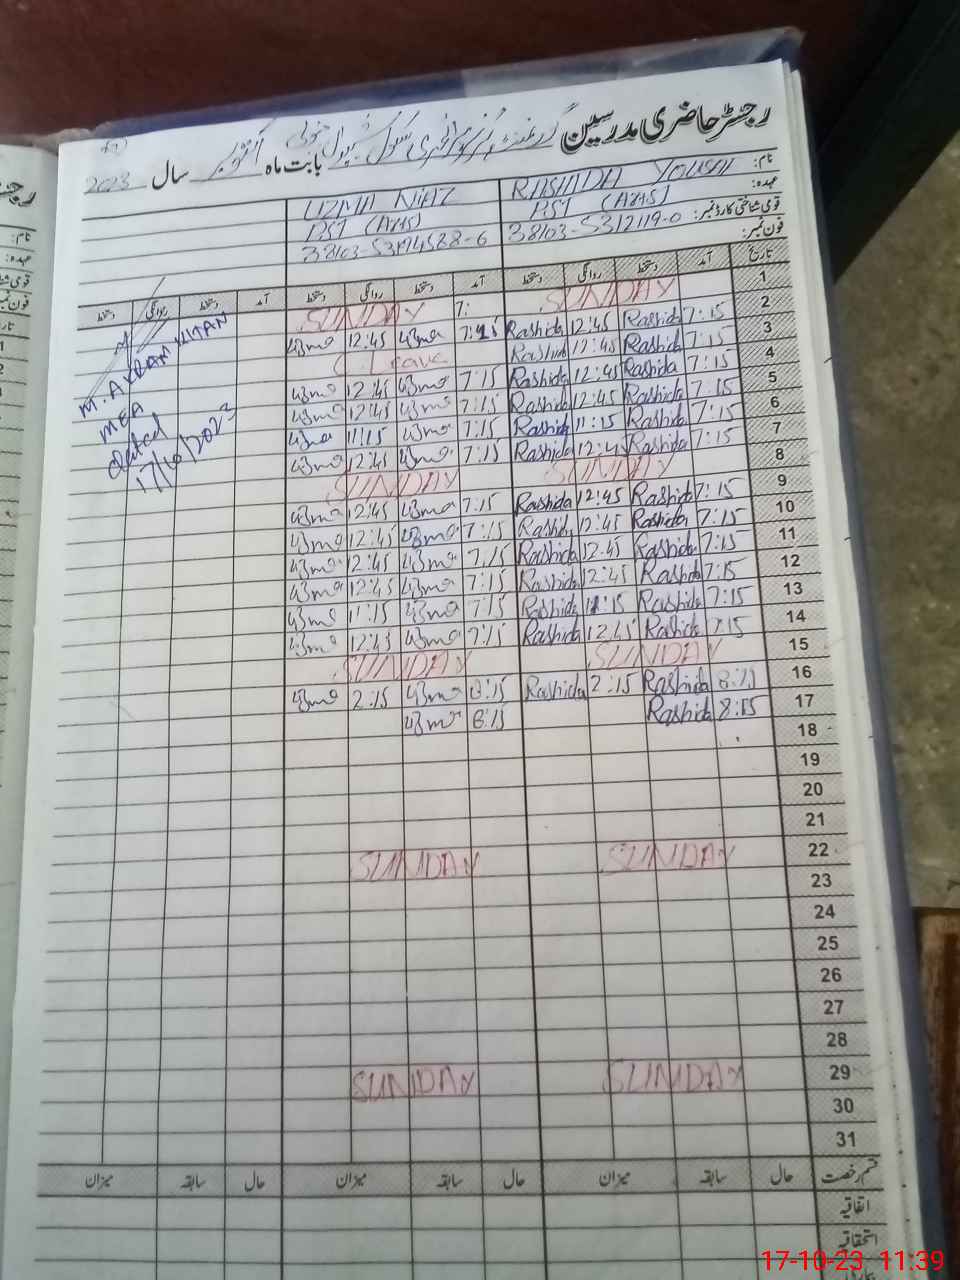 رجسٹر حاضری مدرسین گورنمنٹ پرائمری سکول بابت ماہ اکتوبر سال 2023
نام: RASHIDA YOUSAF UZMA NIAZ
عہدہ: PST PST
قومی شناختی کارڈ نمبر: 38103-5312119-0
فون نمبر:
تاریخ آمد دستخط روانگی دستخط آمد دستخط روانگی دستخط آمد دستخط روانگی دستخط
1 SUNDAY SUNDAY
2 7:15 Rashida 12:45 Rashida 7:15 uzma 12:45 uzma
3 7:15 Rashida 12:45 Rashida Leave
4 7:15 Rashida 12:45 Rashida 7:15 uzma 12:45 uzma
5 7:15 Rashida 12:45 Rashida 7:15 uzma 12:45 uzma
6 7:15 Rashida 11:15 Rashida 7:15 uzma 11:15 uzma
7 7:15 Rashida 12:45 Rashida 7:15 uzma 12:45 uzma
8 SUNDAY SUNDAY
9 7:15 Rashida 12:45 Rashida 7:15 uzma 12:45 uzma
10 7:15 Rashida 12:45 Rashida 7:15 uzma 12:45 uzma
11 7:15 Rashida 12:45 Rashida 7:15 uzma 12:45 uzma
12 7:15 Rashida 12:45 Rashida 7:15 uzma 12:45 uzma
13 7:15 Rashida 11:15 Rashida 7:15 uzma 11:15 uzma
14 7:15 Rashida 12:45 Rashida 7:15 uzma 12:45 uzma
15 SUNDAY SUNDAY
16 8:15 Rashida 2:15 Rashida 8:15 uzma 2:15 uzma
17 8:15 Rashida 8:15 uzma
18
19
20
21
22 SUNDAY SUNDAY
23
24
25
26
27
28
29 SUNDAY SUNDAY
30
31
قسم رخصت حال سابقہ میزان حال سابقہ میزان حال سابقہ میزان
اتفاقیہ
استحقاقیہ
M. AKRAM KHAN
MEA
dated
17/10/2023
17-10-23 11:39